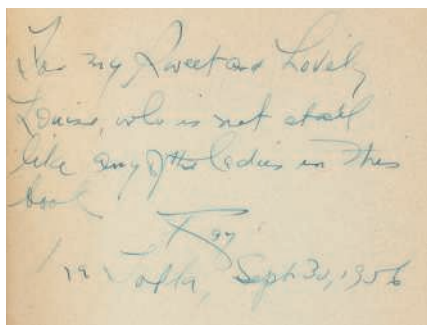 For my Sweet and Lovely
Louise, who is not at all
like any of the ladies in this
book
Ray
La Jolla, Sept 30, 1956